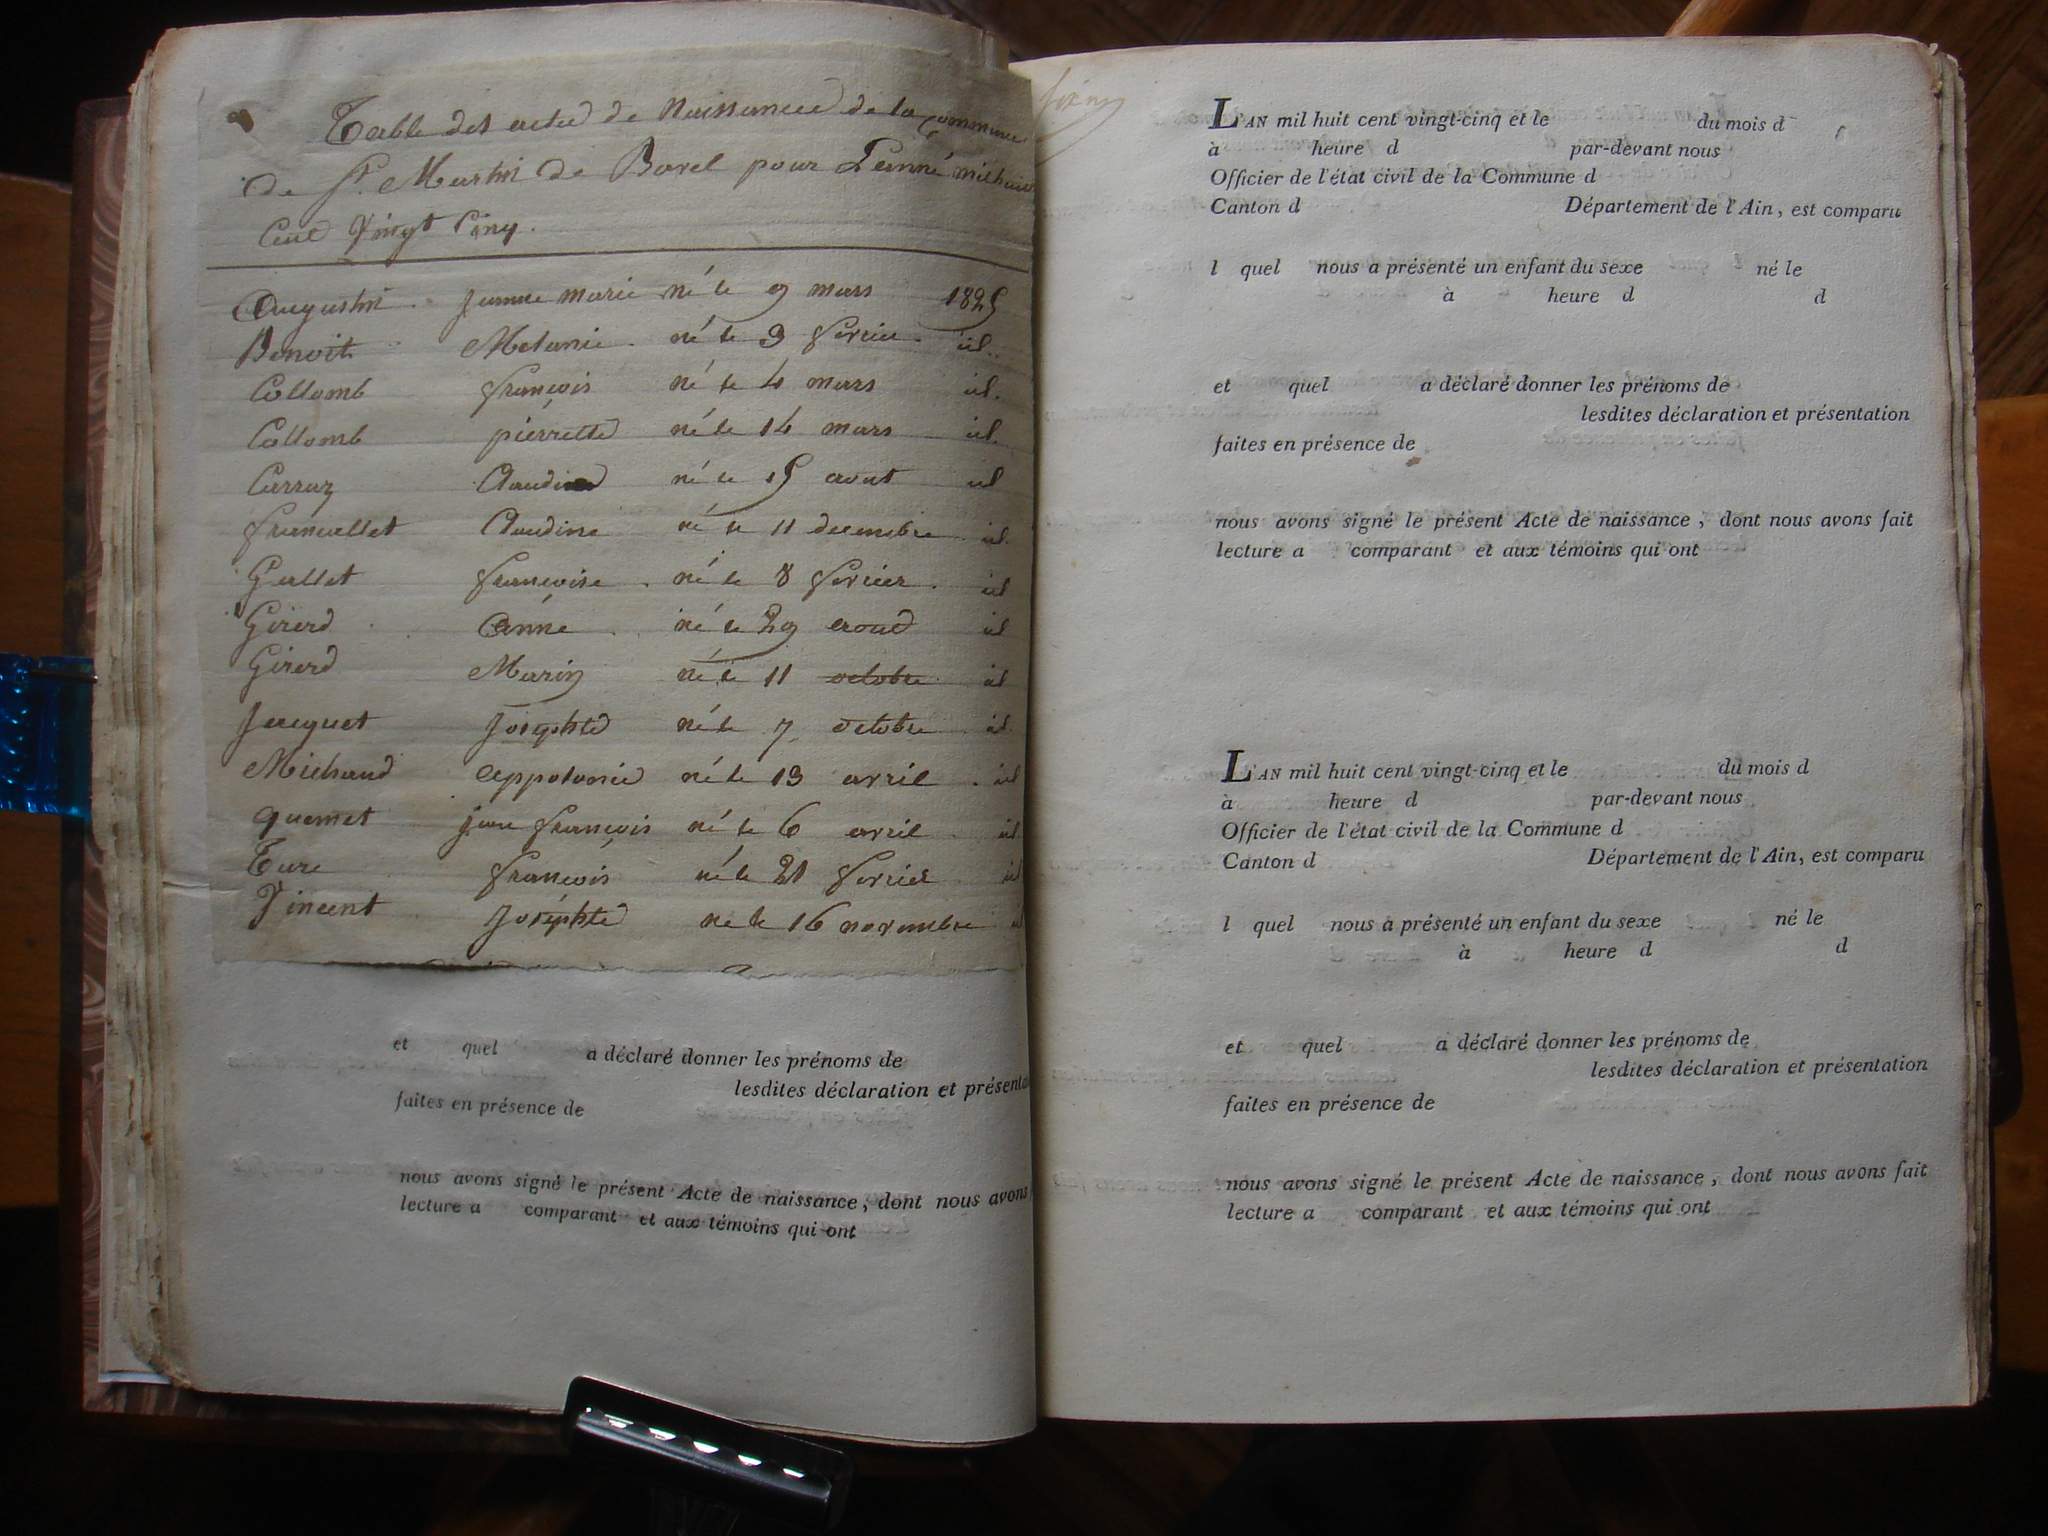 Table des actes de Naissances de la Commune
de St. Martin de Bavel pour L'année mil huit
Cent Vingt Cinq.
Augustin jeanne marie né le 9 mars 1825
Benoit Melanie né le 3 fevrier id.
Collomb françois né le 4 mars id.
Collomb pierrette né le 14 mars id.
Carraz Claudine né le 15 aout id
francallet Claudine né le 11 decembre id.
Gallet françoise né le 8 fevrier id
Girerd Anne né le 29 aoud id
Girerd Marin né le 11 octobre id
Jacquet Josephte né le 7 octobre id.
Michaud Appolonie né le 13 avril id
quemet jean françois né le 6 avril id
Ture françois né le 21 fevrier id
Vincent Josephte né le 16 novembre id
et quel a déclaré donner les prénoms de
lesdites déclaration et présenta
faites en présence de
nous avons signé le présent Acte de naissance, dont nous avons
lecture a comparant et aux témoins qui ont
L'AN mil huit cent vingt-cinq et le du mois d
à heure d par-devant nous
Officier de l'état civil de la Commune d
Canton d Département de l'Ain, est comparu
l quel nous a présenté un enfant du sexe né le
à heure d d
et quel a déclaré donner les prénoms de
lesdites déclaration et présentation
faites en présence de
nous avons signé le présent Acte de naissance, dont nous avons fait
lecture a comparant et aux témoins qui ont
L'AN mil huit cent vingt-cinq et le du mois d
à heure d par-devant nous
Officier de l'état civil de la Commune d
Canton d Département de l'Ain, est comparu
l quel nous a présenté un enfant du sexe né le
à heure d d
et quel a déclaré donner les prénoms de
lesdites déclaration et présentation
faites en présence de
nous avons signé le présent Acte de naissance, dont nous avons fait
lecture a comparant et aux témoins qui ont